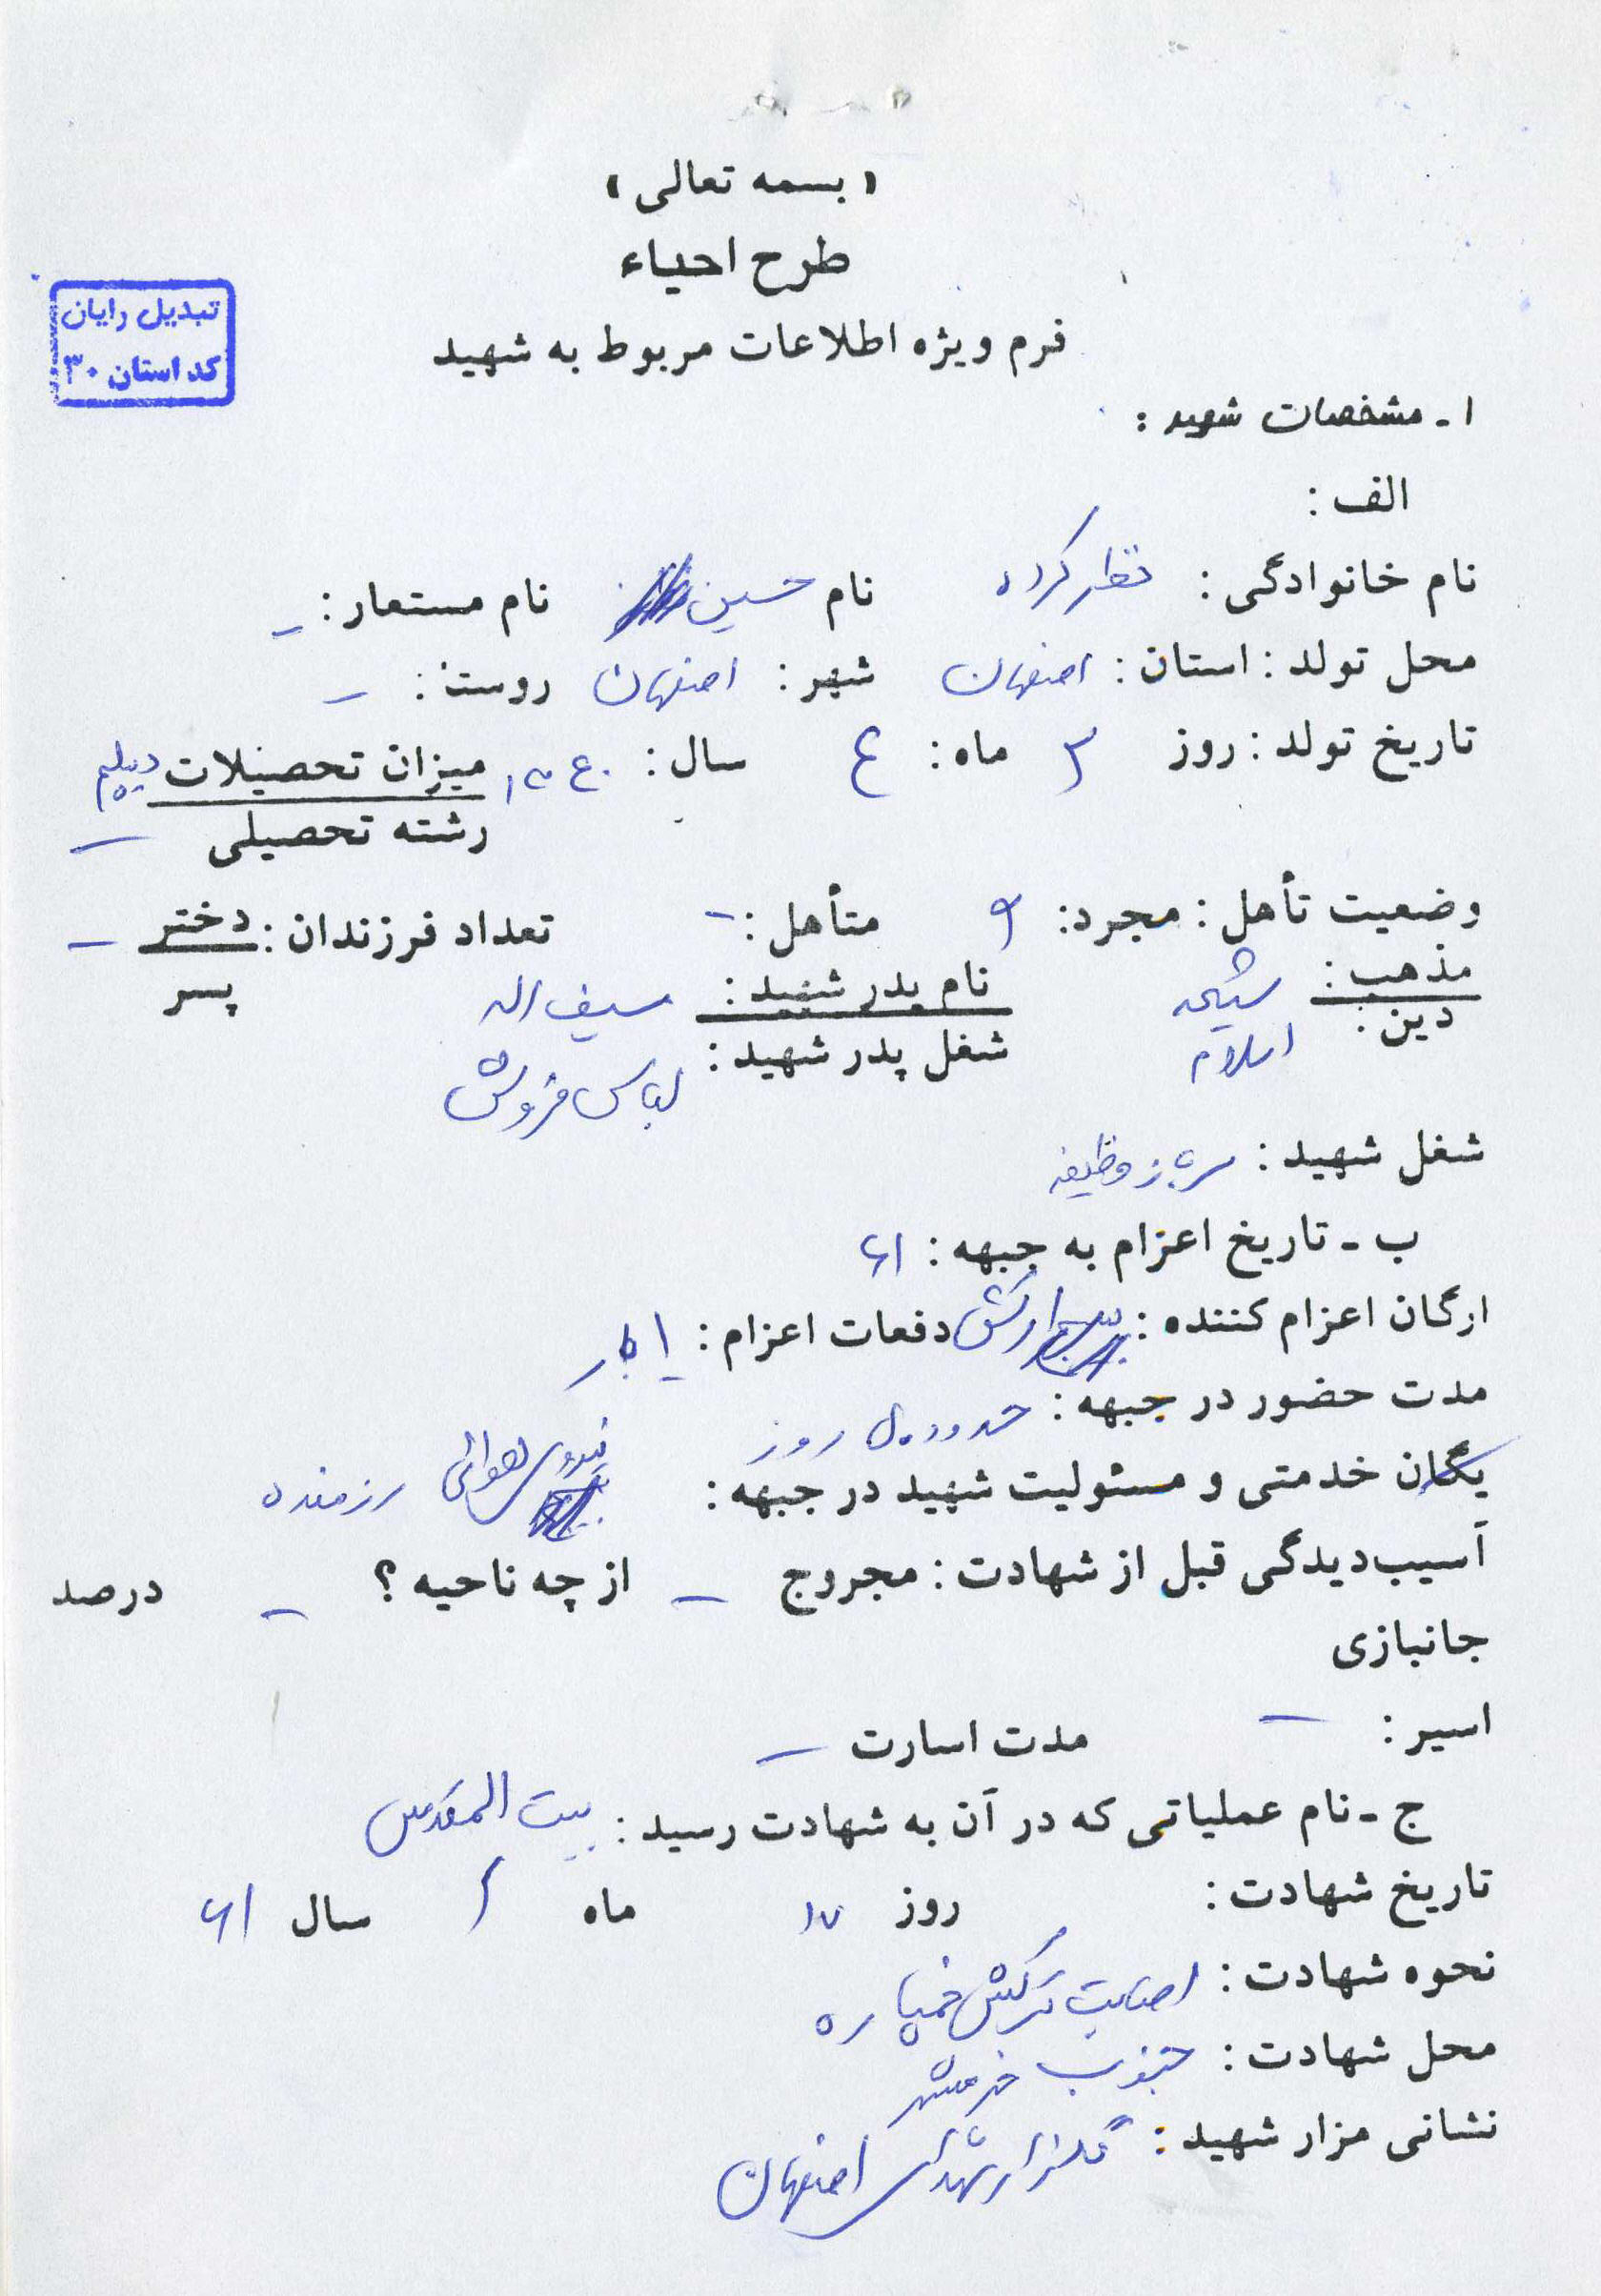 « بسمه تعالی »
طرح احیاء
تبدیل رایان
کد استان ۳۰
فرم ویژه اطلاعات مربوط به شهید
۱ - مشخصات شهید :
الف :
نام خانوادگی : نظرکرده نام حسین نام مستعار : -
محل تولد : استان : اصفهان شهر : اصفهان روستا : -
تاریخ تولد : روز ۳ ماه : ۴ سال : ۱۳۴۰ میزان تحصیلات دیپلم
رشته تحصیلی -
وضعیت تأهل : مجرد : متأهل : - تعداد فرزندان : دختر -
پسر
مذهب : شیعه نام پدر شهید : سیف اله
دین : اسلام شغل پدر شهید : لباس فروش
شغل شهید : سرباز وظیفه
ب - تاریخ اعزام به جبهه : ۶۱
ارگان اعزام کننده : ارتش دفعات اعزام : ۱ بار
مدت حضور در جبهه : حدود روز
یگان خدمتی و مسئولیت شهید در جبهه : نیروی هوائی رزمنده
آسیب‌دیدگی قبل از شهادت : مجروج - از چه ناحیه ؟ - درصد
جانبازی
اسیر : - مدت اسارت -
ج - نام عملیاتی که در آن به شهادت رسید : بیت المقدس
تاریخ شهادت : روز ۱۷ ماه ۲ سال ۶۱
نحوه شهادت : اصابت ترکش خمپاره
محل شهادت : جنوب خرمشهر
نشانی مزار شهید : گلزار شهدای اصفهان